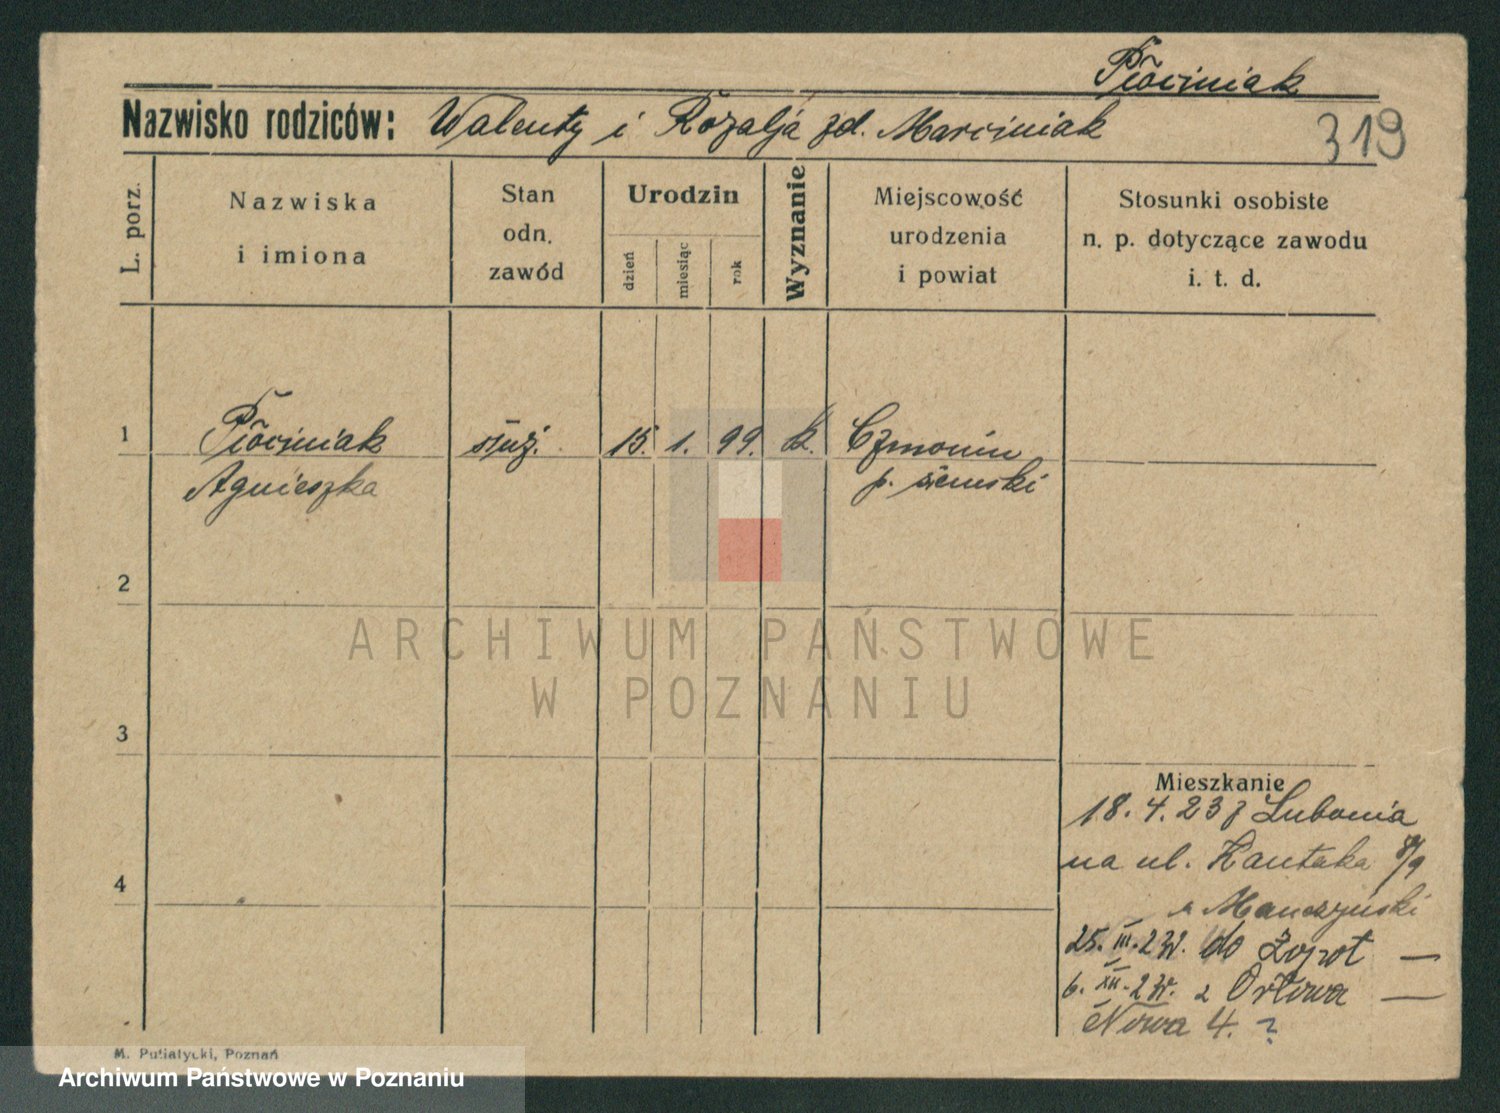 Płóciniak
Nazwisko rodziców: Walenty i Rozalja zd. Marciniak
319
L. porz.
Nazwiska
i imiona
Stan
odn.
zawód
Urodzin
dzień
miesiąc
rok
Wyznanie
Miejscowość
urodzenia
i powiat
Stosunki osobiste
n. p. dotyczące zawodu
i. t. d.
1
Płóciniak
Agnieszka
służ.
15.
1.
99.
k.
Czmonin
p. śremski
2
ARCHIWUM PAŃSTWOWE
W POZNANIU
3
4
Mieszkanie
18.4.23 z Lubonia
na ul. Kantaka 8/9
25. III. do Zopot —
6. XII. z Orłowa —
Nowa 4. ?
M. Putiatycki, Poznań
Archiwum Państwowe w Poznaniu